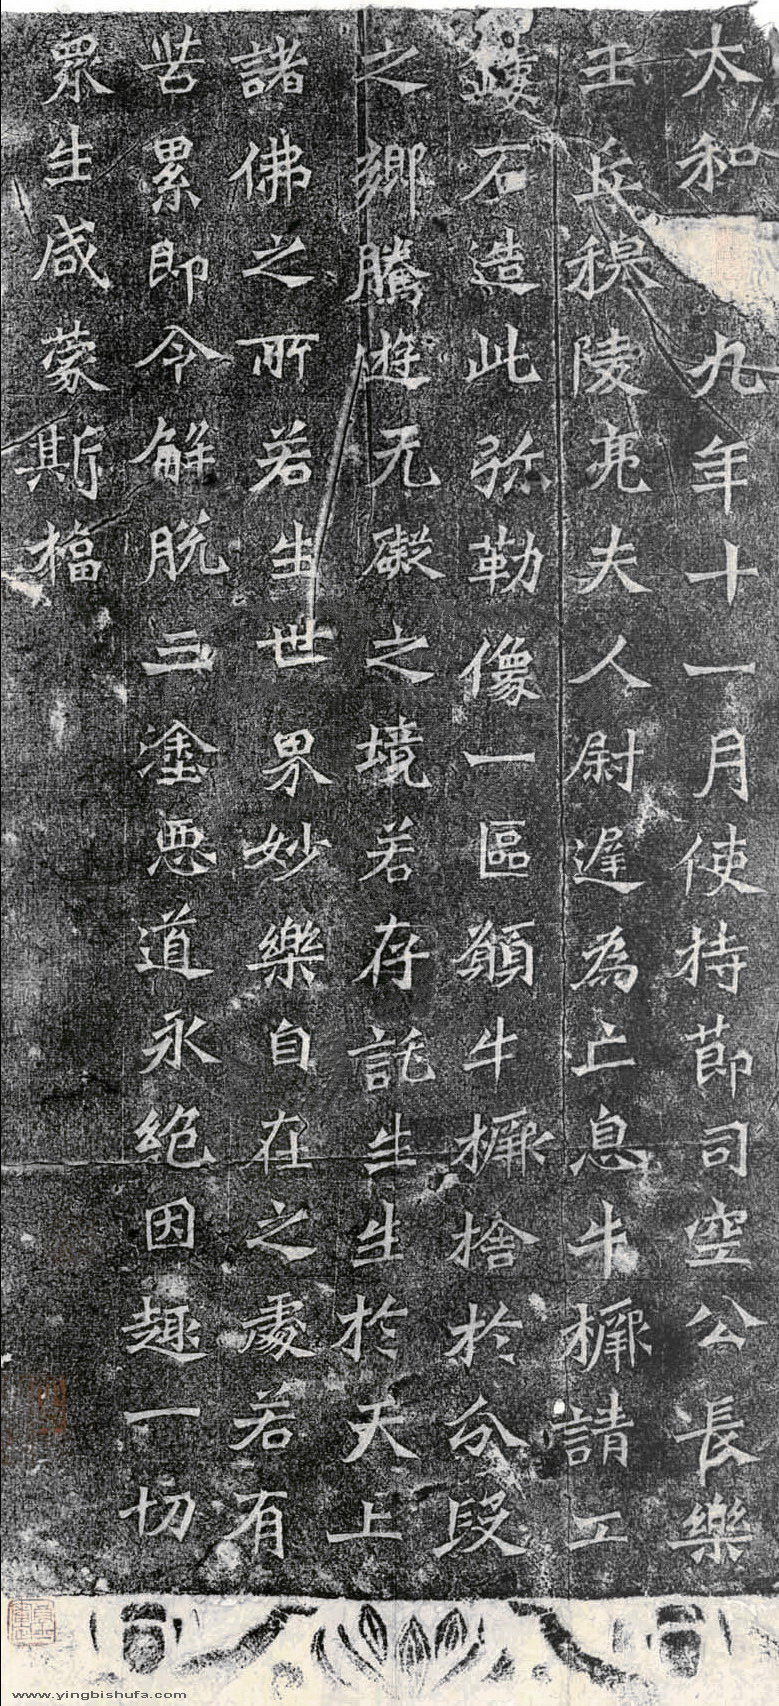 太和九年十一月使持莭司空公長樂
王丘穆陵亮夫人尉遲為亡息牛橛請工
鏤石造此弥勒像一區願牛橛捨於分段
之鄉騰遊无礙之境若存託生生於天上
諸佛之所若生世界妙樂自在之處若有
苦累即令解脱三塗惡道永絶因趣一切
眾生咸蒙斯福
www.yingbishufa.com